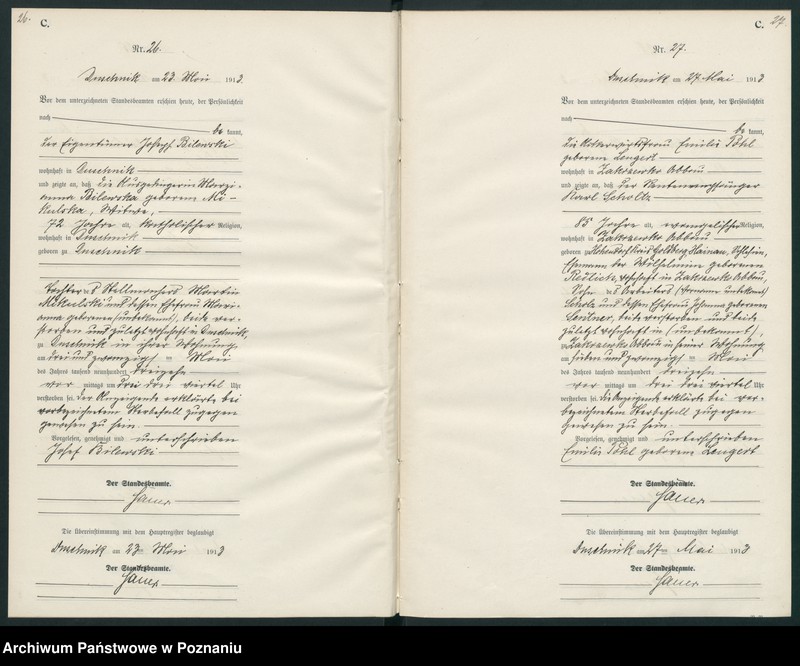 26.
C.
Nr. 26.
Duschnik am 23. Mai 1913.
Vor dem unterzeichneten Standesbeamten erschien heute, der Persönlichkeit
nach
be kannt,
der Eigentümer Joseph Bilewski
wohnhaft in Duschnik
und zeigte an, daß die Ausgedingerin Marri-
anna Bilewska geborene Mi-
kulska, Witwe,
72 Jahre alt, katholischer Religion,
wohnhaft in Duschnik
geboren zu Duschnik
Tochter des Stellmachers Martin
Mikulski und dessen Ehefrau Mari-
anna geborenen (unbekannt), beide ver-
storben und zuletzt wohnhaft in Duschnik,
zu Duschnik in ihrer Wohnung
am drei und zwanzigsten Mai
des Jahres tausend neunhundert dreizehn
vor mittags um drei drei viertel Uhr
verstorben sei. Der Anzeigende erklärte bei
vorbezeichnetem Sterbefall zugegen
gewesen zu sein.
Vorgelesen, genehmigt und unterschrieben
Josef Bilewski
Der Standesbeamte.
Die Übereinstimmung mit dem Hauptregister beglaubigt
Duschnik am 23ten Mai 1913
Der Standesbeamte.
C.
27.
Nr. 27.
Duschnik am 27 Mai 1913
Vor dem unterzeichneten Standesbeamten erschien heute, der Persönlichkeit
nach
be kannt,
die Ackerwirtsfrau Emilie Pohl
geborene Lengert
wohnhaft in Zakrzewko Abbau
und zeigte an, daß der Rentenempfänger
Karl Scholz
85 Jahre alt, evangelischer Religion,
wohnhaft in Zakrzewko Abbau
geboren zu Hohendorf Kreis Goldberg Hainau, Schlesien,
Ehemann der Wilhelmine geborenen
wohnhaft in Zakrzewko Abbau,
Sohn des Arbeiters (Vorname unbekannt)
Scholz und dessen Ehefrau Johanna geborenen
beide verstorben und beide
zuletzt wohnhaft in (unbekannt),
zu Zakrzewko Abbau in seiner Wohnung
am sieben und zwanzigsten Mai
des Jahres tausend neunhundert dreizehn
vor mittags um drei drei viertel Uhr
verstorben sei. Die Anzeigende erklärte bei vor-
bezeichnetem Sterbefall zugegen
gewesen zu sein.
Vorgelesen, genehmigt und unterschrieben
Emilie Pohl geborene Lengert
Der Standesbeamte.
Die Übereinstimmung mit dem Hauptregister beglaubigt
Duschnik am 27ten Mai 1913
Der Standesbeamte.
Archiwum Państwowe w Poznaniu